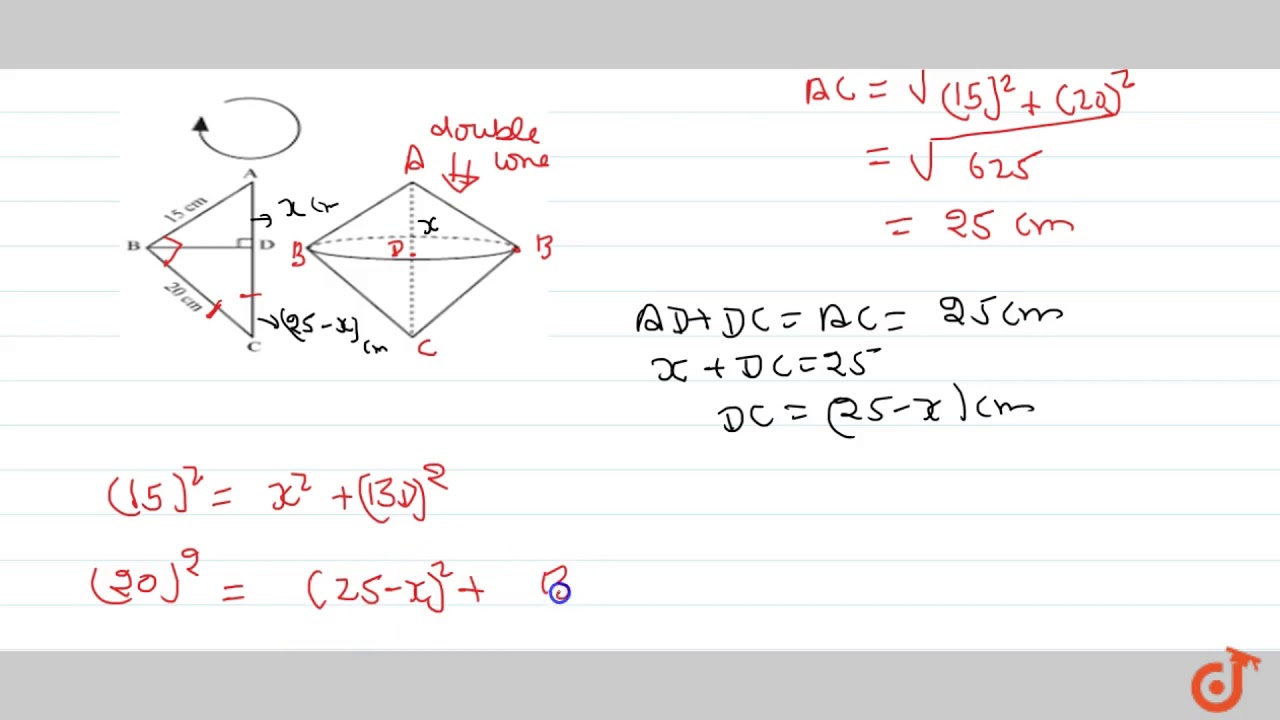 AC = √(15)² + (20)²
= √625
= 25 cm
double
cone
A
15 cm
x cm
B
D
20 cm
(25-x)
cm
C
A
x
B
D
B
C
AD+DC = AC = 25 cm
x + DC = 25
DC = (25-x) cm
(15)² = x² + (BD)²
(20)² = (25-x)² + B